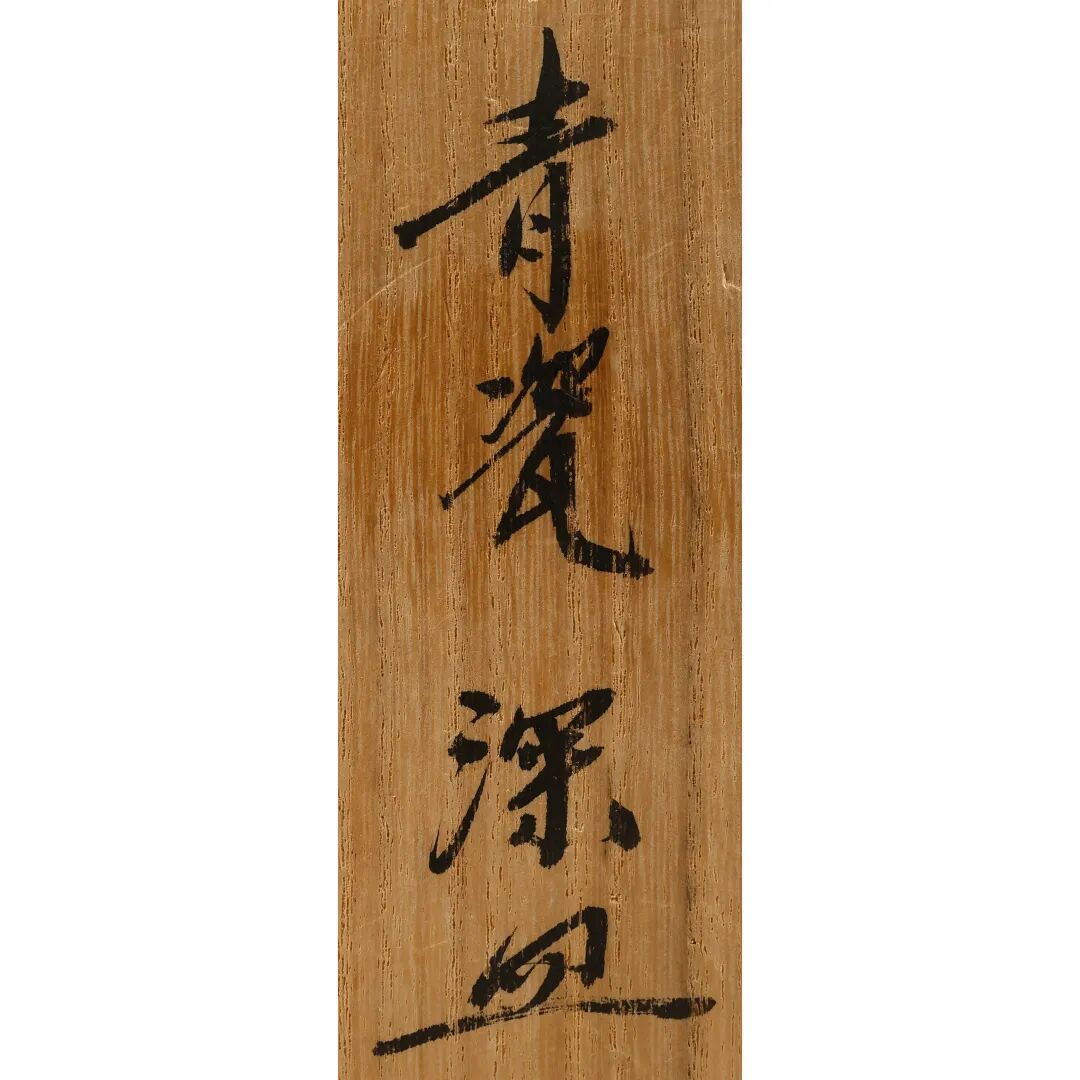 青瓷深皿